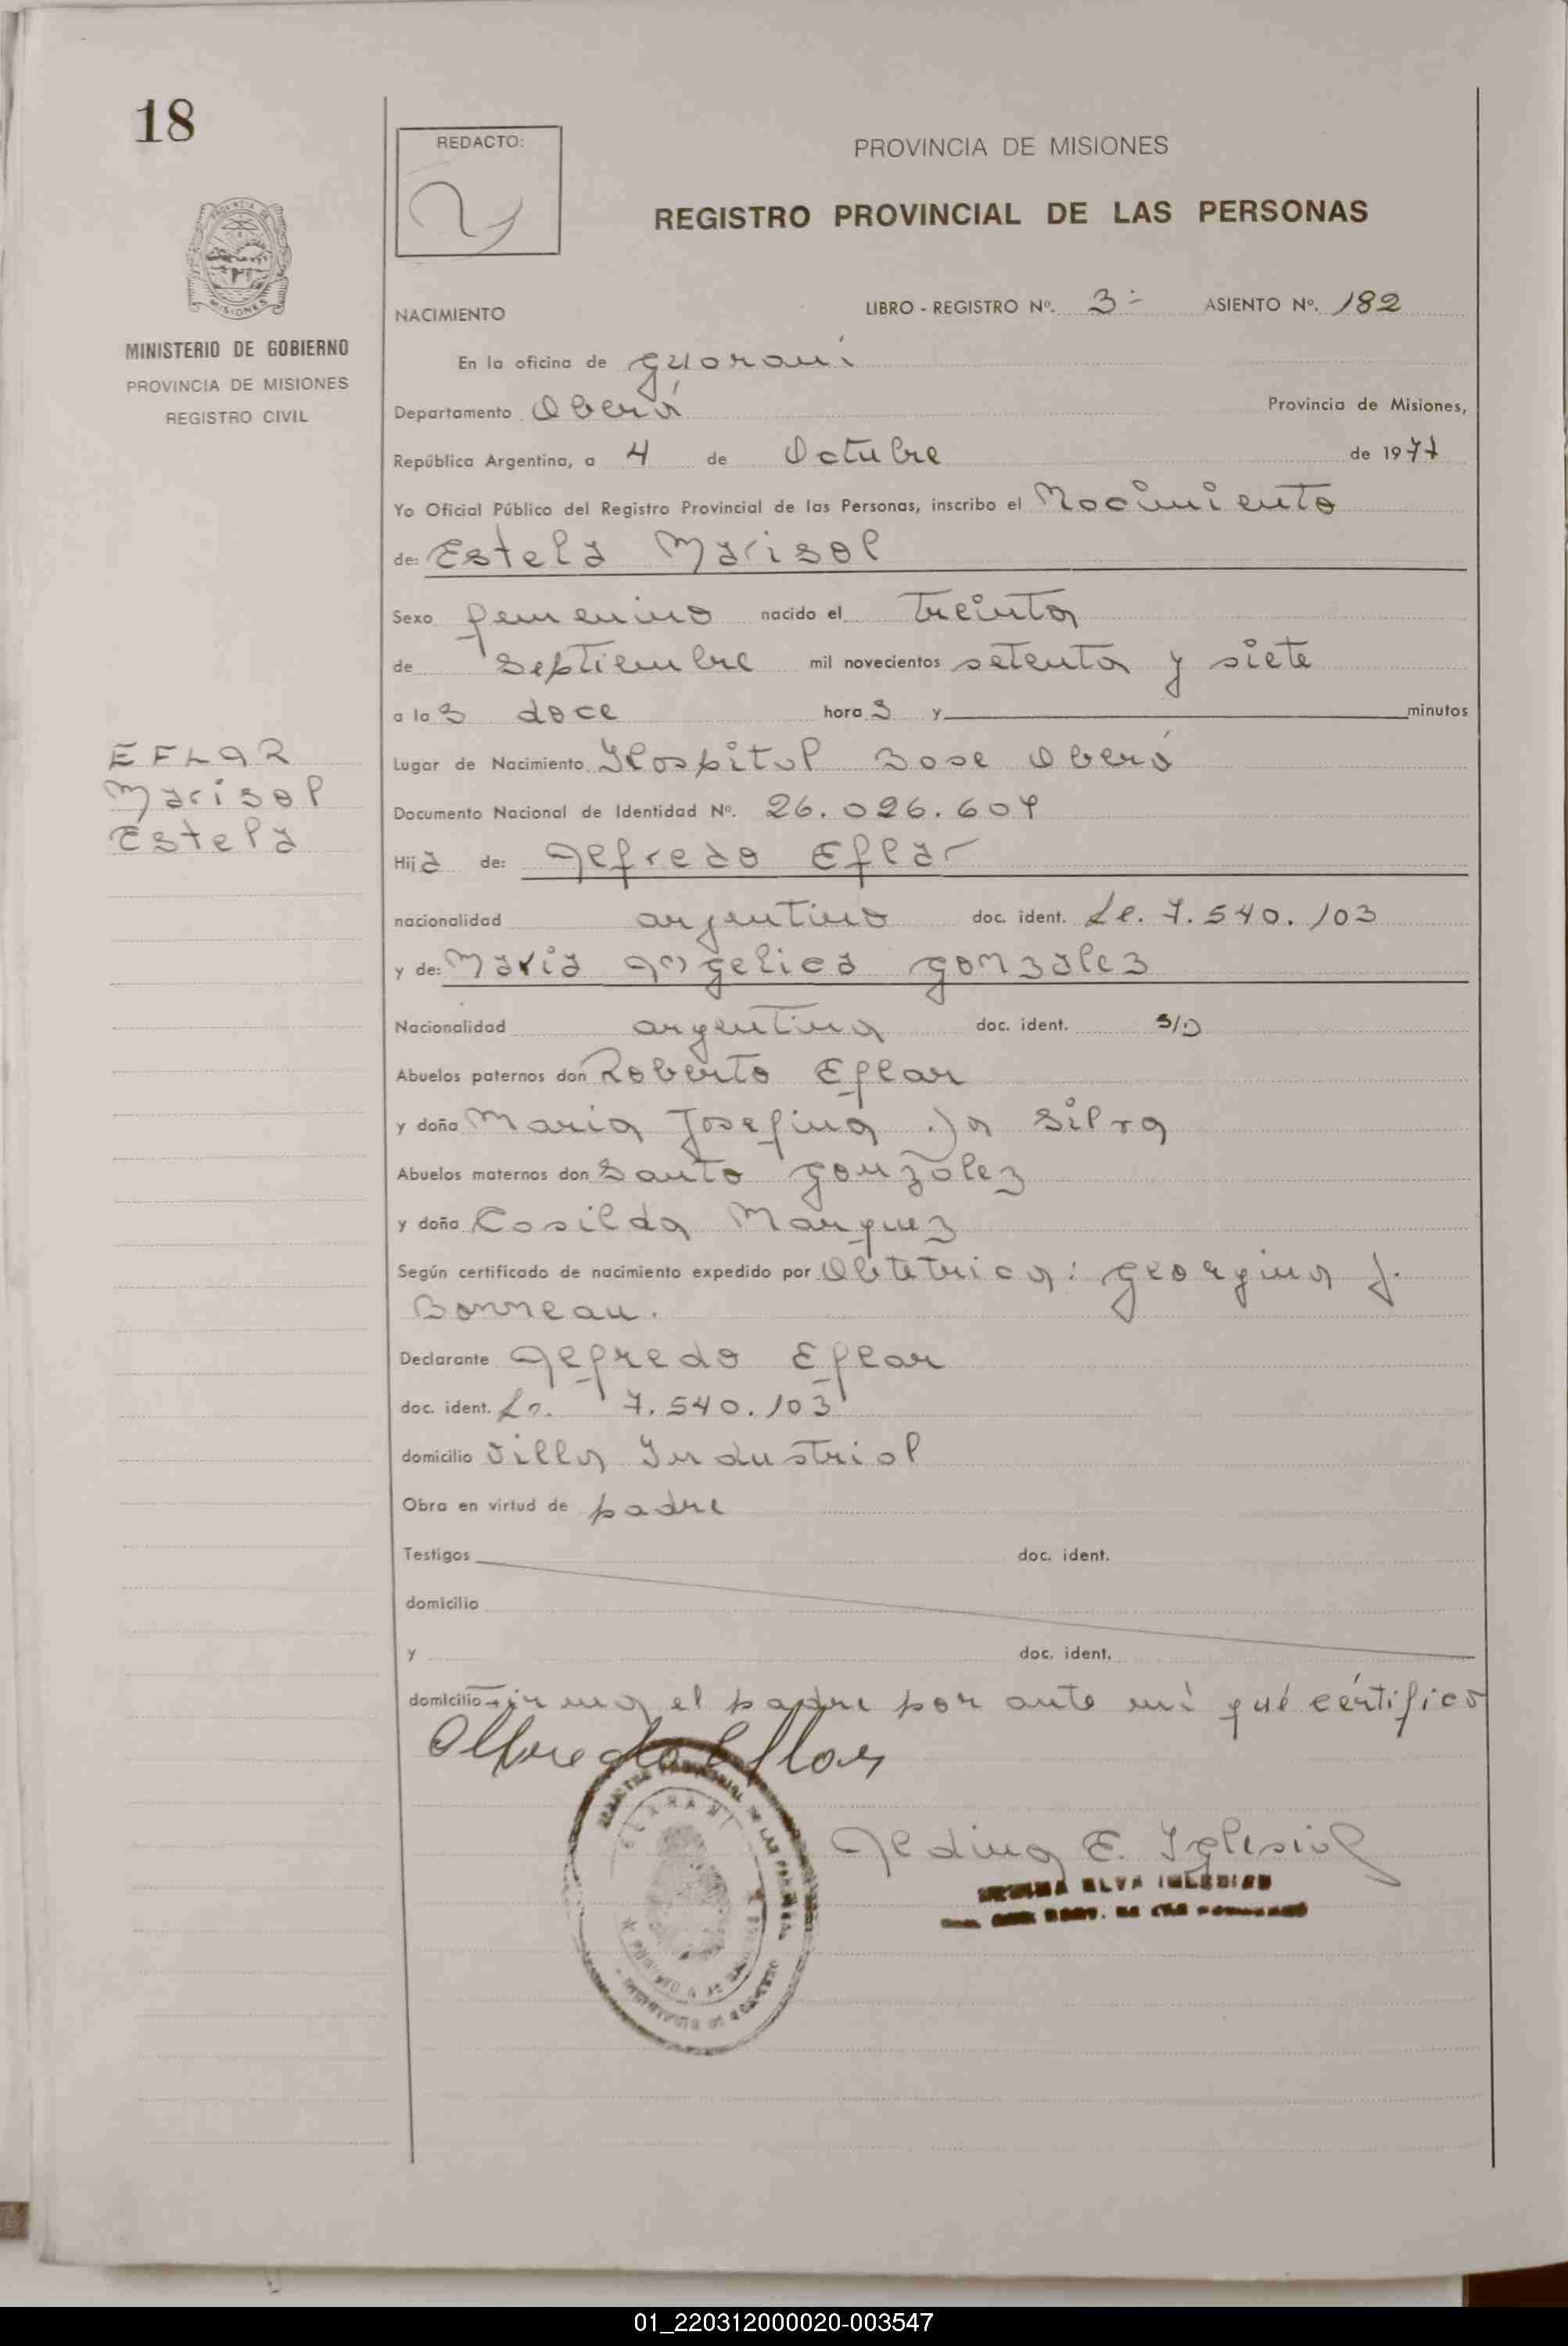 18
REDACTO:
PROVINCIA DE MISIONES
REGISTRO PROVINCIAL DE LAS PERSONAS
MINISTERIO DE GOBIERNO
PROVINCIA DE MISIONES
REGISTRO CIVIL
NACIMIENTO LIBRO - REGISTRO Nº. 3 ASIENTO Nº. 182
En la oficina de Guaraní
Departamento Oberá Provincia de Misiones,
República Argentina, a 4 de Octubre de 1977
Yo Oficial Público del Registro Provincial de las Personas, inscribo el Nacimiento
de: Estela Marisol
Sexo femenino nacido el Treinta
de Septiembre mil novecientos setenta y siete
a las doce horas y minutos
EFLAR
Marisol
Estela
Lugar de Nacimiento Hospital Base Oberá
Documento Nacional de Identidad Nº. 26.026.609
Hija de: Alfredo Eflar
nacionalidad argentino doc. ident. Le. 7.540.103
y de: Maria Angelica Gonzalez
Nacionalidad argentina doc. ident. S/D
Abuelos paternos don Roberto Eflar
y doña Maria Josefina Da Silva
Abuelos maternos don Santo Gonzalez
y doña Casilda Marquez
Según certificado de nacimiento expedido por Obtetrica: Georgina J.
Bonneau.
Declarante Alfredo Eflar
doc. ident. Le. 7.540.103
domicilio Villa Industrial
Obra en virtud de padre
Testigos doc. ident.
domicilio
y doc. ident.
domicilio Firma el padre por ante mí qué cértifico
Alfredo Eflar
GUARANI
Aedina E. Iglesias
ELVA IGLESIAS
01_220312000020-003547